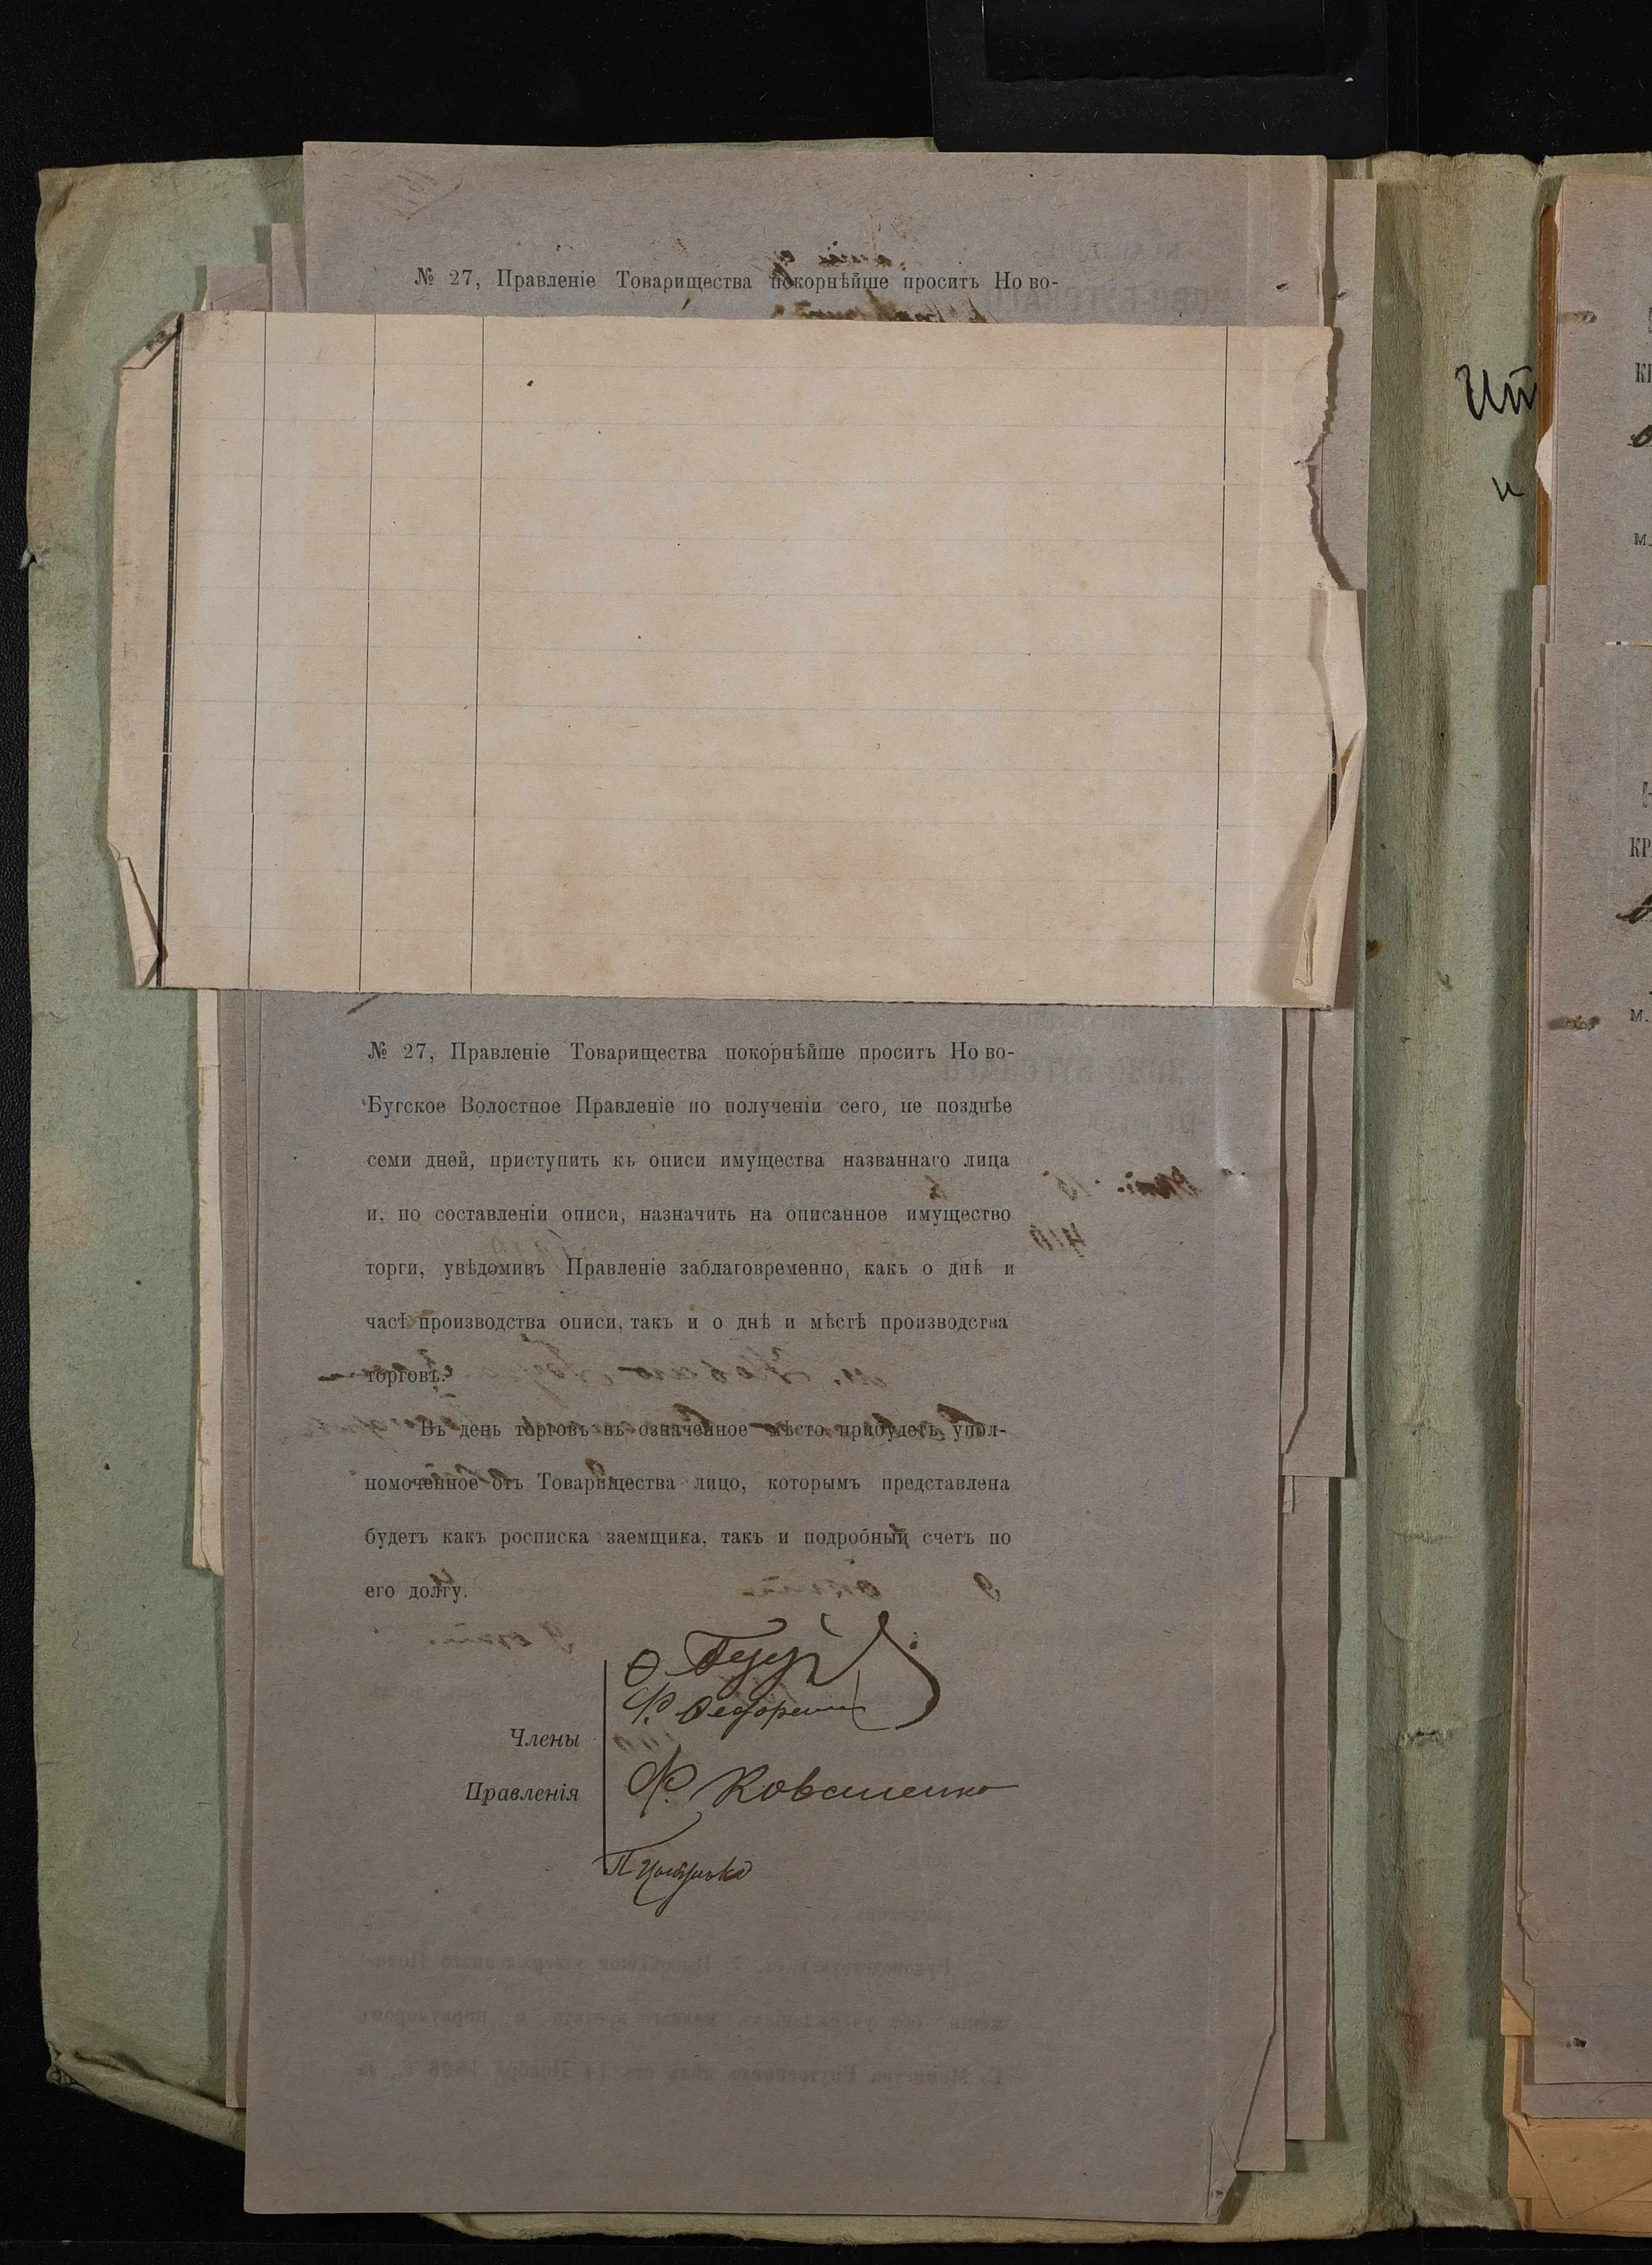 № 27, Правленіе Товарищества покорнѣйше проситъ Ново-
№ 27, Правленіе Товарищества покорнѣйше проситъ Ново-
Бугское Волостное Правленіе по полученіи сего, не позднѣе
семи дней, приступить къ описи имущества названнаго лица
и, по составленіи описи, назначить на описанное имущество
торги, увѣдомивъ Правленіе заблаговременно, какъ о днѣ и
часѣ производства описи, такъ и о днѣ и мѣстѣ производства
торговъ.
Въ день торговъ въ означенное мѣсто прибудетъ упол-
номоченное отъ Товарищества лицо, которымъ представлена
будетъ какъ росписка заемщика, такъ и подробный счетъ по
его долгу.
Члены
Правленія
Ф. Коваленко